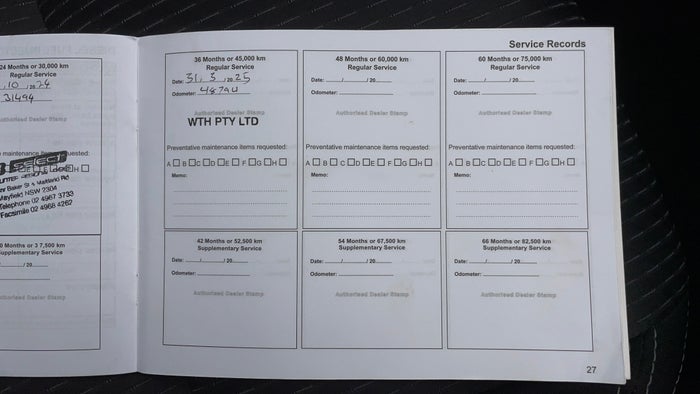 Service Records
24 Months or 30,000 km
Regular Service
10 /2024
31494
Authorised Dealer Stamp
maintenance items requested:
SELECT
Baker St & Maitland Rd
Mayfield NSW 2304
Telephone 02 4967 3733
Facsimile 02 4968 4262
0 Months or 3 7,500 km
Supplementary Service
/ /20
Authorised Dealer Stamp
36 Months or 45,000 km
Regular Service
Date: 31 / 3 /2025
Odometer: 48794
Authorised Dealer Stamp
WTH PTY LTD
Preventative maintenance items requested:
A B C D E F G H
Memo:
48 Months or 60,000 km
Regular Service
Date: / /20
Odometer:
Authorised Dealer Stamp
Preventative maintenance items requested:
A B C D E F G H
Memo:
60 Months or 75,000 km
Regular Service
Date: / /20
Odometer:
Authorised Dealer Stamp
Preventative maintenance items requested:
A B C D E F G H
Memo:
42 Months or 52,500 km
Supplementary Service
Date: / /20
Odometer:
Authorised Dealer Stamp
54 Months or 67,500 km
Supplementary Service
Date: / /20
Odometer:
Authorised Dealer Stamp
66 Months or 82,500 km
Supplementary Service
Date: / /20
Odometer:
Authorised Dealer Stamp
27